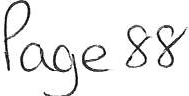 Page 88